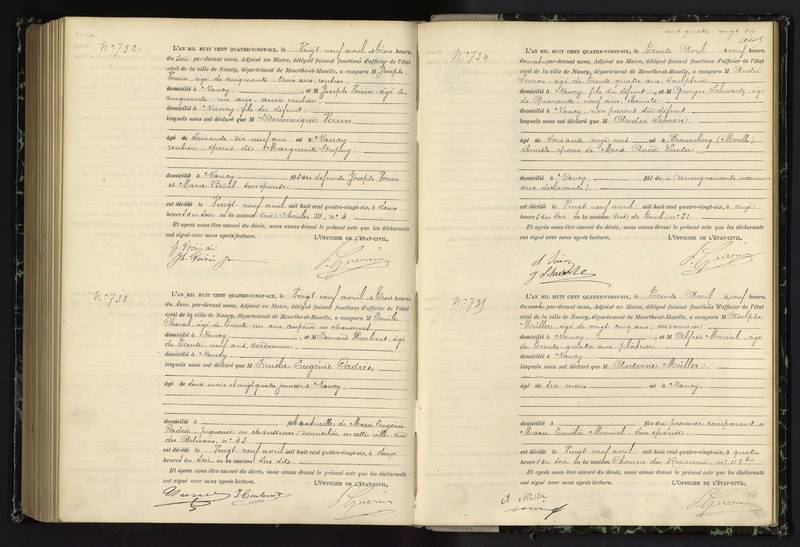 N° 732.
L'AN MIL HUIT CENT QUATRE-VINGT-SIX, le Vingt neuf avril à trois heures
du soir par-devant nous, Adjoint au Maire, délégué faisant fonctions d'officier de l'état
civil de la ville de Nancy, département de Meurthe-et-Moselle, a comparu M Joseph
Voirin, âgé de cinquante trois ans, rentier
domicilié à Nancy, et M Joseph Voirin âgé de
cinquante un ans, aussi rentier
domicilié à Nancy, fils du défunt
lesquels nous ont déclaré que M Dominique Voirin
âgé de Soixante dix neuf ans né à Nancy
rentier, époux de Marguerite
domicilié à Nancy fils des défunts Joseph Voirin
et Marie son épouse
est décédé le Vingt neuf avril mil huit cent quatre-vingt-six, à deux
heures du soir en la maison rue Charles III, n° 4
Et après nous être assuré du décès, nous avons dressé le présent acte que les déclarants
ont signé avec nous après lecture. L'OFFICIER DE L'ÉTAT-CIVIL,
J. Voirin
Jh. Voirin
N° 733
L'AN MIL HUIT CENT QUATRE-VINGT-SIX, le Vingt neuf avril à trois heures
du soir par-devant nous, Adjoint au Maire, délégué faisant fonctions d'officier de l'état
civil de la ville de Nancy, département de Meurthe-et-Moselle, a comparu M
âgé de trente un ans en chaussures
domicilié à Nancy, et M âgé
de trente neuf ans, cordonnier
domicilié à Nancy
lesquels nous ont déclaré que M Emilie Eugénie
âgé de deux mois et vingt quatre jours né à Nancy
domicilié à fils naturelle de Marie Eugénie
piqueuse en chaussures, domiciliée en cette ville, rue
des Artisans, n° 43
est décédé le Vingt neuf avril mil huit cent quatre-vingt-six, à deux
heures du soir en la maison sus dite
Et après nous être assuré du décès, nous avons dressé le présent acte que les déclarants
ont signé avec nous après lecture. L'OFFICIER DE L'ÉTAT-CIVIL,
cent quatre vingt dix
N° 734
L'AN MIL HUIT CENT QUATRE-VINGT-SIX, le Trente Avril à neuf heures
du matin par-devant nous, Adjoint au Maire, délégué faisant fonctions d'officier de l'état
civil de la ville de Nancy, département de Meurthe-et-Moselle, a comparu M André
Simon, âgé de trente quatre ans
domicilié à Nancy fils du défunt, et M Georges Schwartz, âgé
de Quarante neuf ans
domicilié à Nancy, non parent du défunt
lesquels nous ont déclaré que M André Simon
âgé de Soixante onze ans né à (Moselle)
époux de Marie Anne
domicilié à Nancy fils de (renseignements inconnus
aux déclarants)
est décédé le Vingt neuf avril mil huit cent quatre-vingt-six, à onze
heures du soir en la maison rue de Toul n° 31
Et après nous être assuré du décès, nous avons dressé le présent acte que les déclarants
ont signé avec nous après lecture. L'OFFICIER DE L'ÉTAT-CIVIL,
A Simon
N° 735
L'AN MIL HUIT CENT QUATRE-VINGT-SIX, le Trente Avril à neuf heures
du matin par-devant nous, Adjoint au Maire, délégué faisant fonctions d'officier de l'état
civil de la ville de Nancy, département de Meurthe-et-Moselle, a comparu M Adolphe
Müller, âgé de vingt cinq ans, cordonnier
domicilié à Nancy, et M Alfred, âgé
de trente quatre ans, plâtrier
domicilié à Nancy
lesquels nous ont déclaré que M Antoine Müller
âgé de six mois né à Nancy
domicilié à fils du premier comparant et
Marie Emélie son épouse
est décédé le Vingt neuf avril mil huit cent quatre-vingt-six, à quatre
heures du soir en la maison Chemin du
Et après nous être assuré du décès, nous avons dressé le présent acte que les déclarants
ont signé avec nous après lecture. L'OFFICIER DE L'ÉTAT-CIVIL,
A Müller